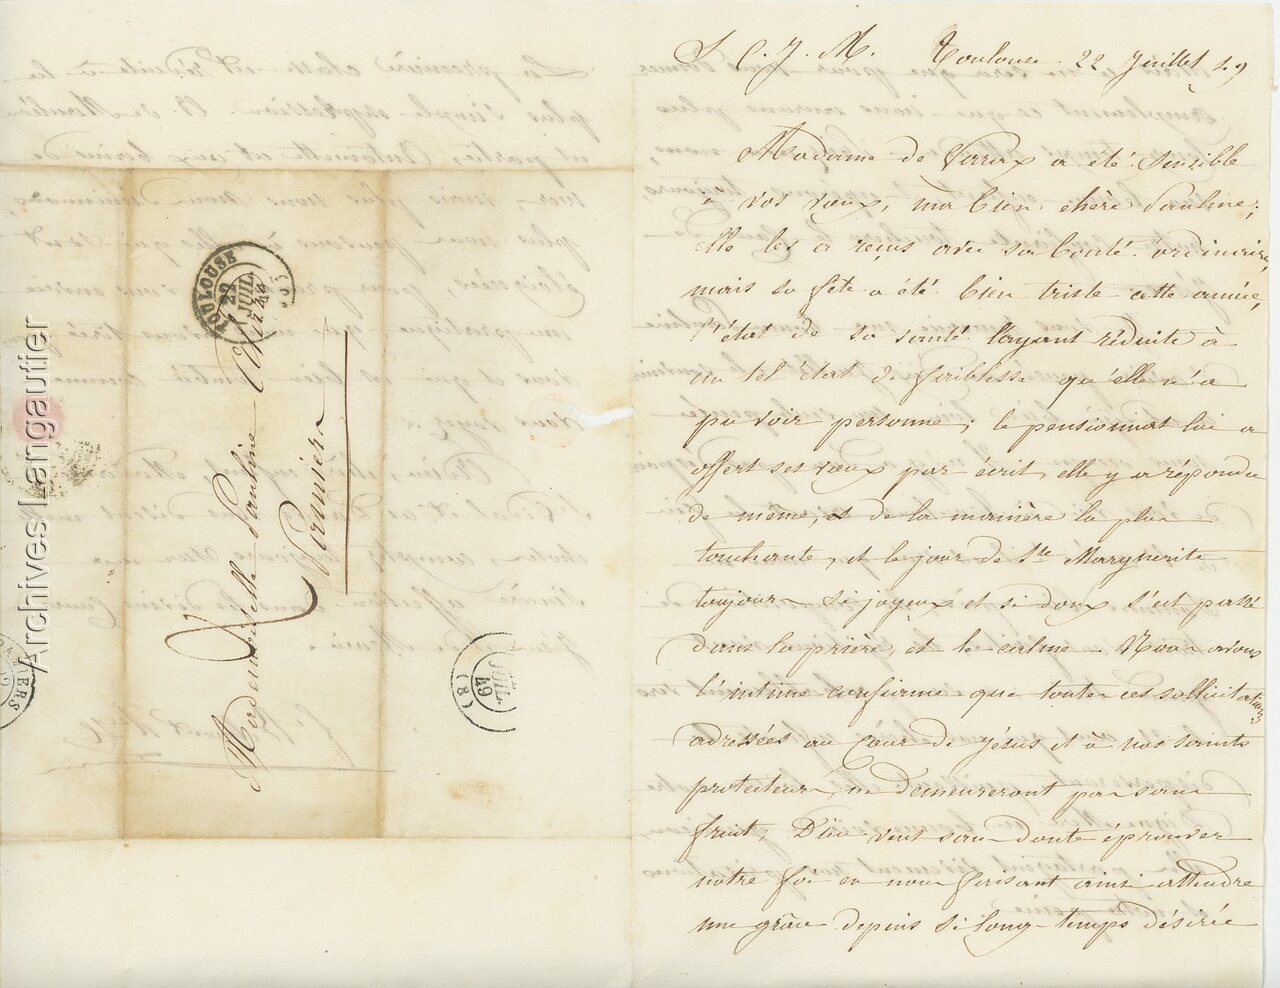 S. C. J. M. Toulouse 22 Juillet 49
Madame de Varax a été sensible
à vos vœux, ma bien chère Pauline;
elle les a reçus avec sa bonté ordinaire,
mais sa fête a été bien triste cette année,
l'état de sa santé l'ayant réduite à
un tel état de faiblesse qu'elle n'a
pu voir personne; le pensionnat lui a
offert ses vœux par écrit, elle y a répondu
de même, et de la manière la plus
touchante, et le jour de Ste Marguerite
toujours si joyeux et si doux s'est passé
dans la prière et le calme. Nous avons
l'intime confiance que toutes ces sollicitations
adressées au Cœur de Jésus et à nos saints
protecteurs, ne demeureront pas sans
fruit; Dieu veut sans doute éprouver
notre foi en nous faisant ainsi attendre
une grâce depuis si long-temps désirée
Mademoiselle Pauline
Pamiers
TOULOUSE
23
JUIL
49
JUIL
49
(8)
Archives Langautier